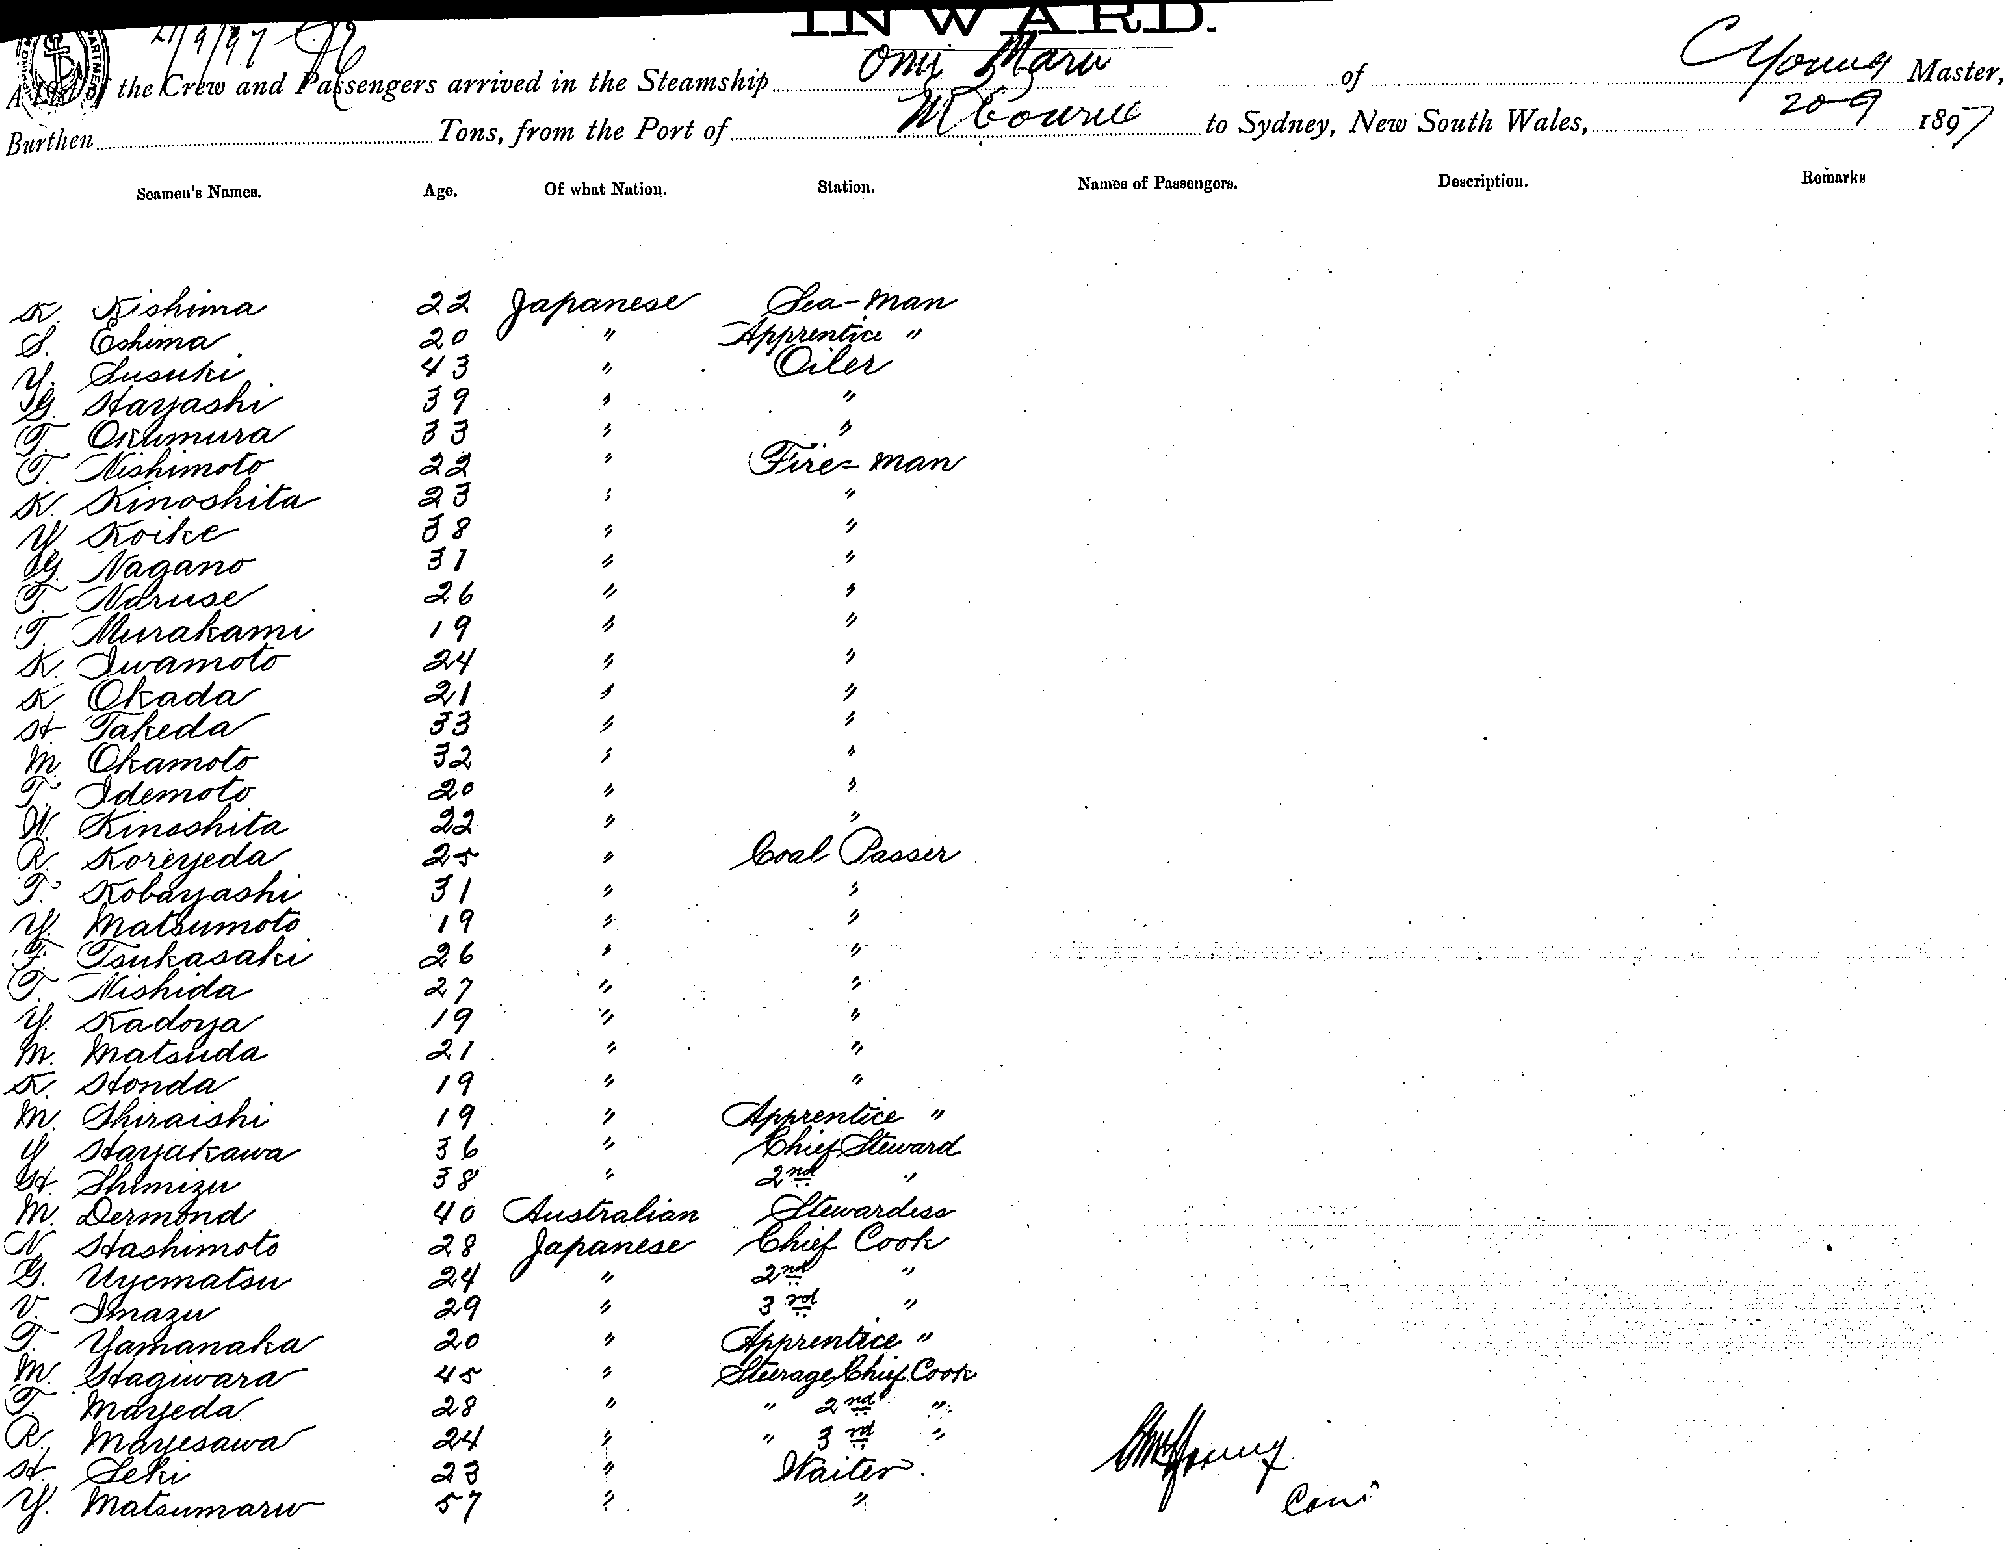 INWARD.
21/9/97
A List of the Crew and Passengers arrived in the Steamship Omi Maru of C Young Master,
Burthen Tons, from the Port of Mbourne to Sydney, New South Wales, 20-9 1897
Seamen's Names. Age. Of what Nation. Station. Names of Passengers. Description. Remarks
K. Kishima 22 Japanese Sea-man
S. Eshima 20 " Apprentice "
Y. Susuki 43 " Oiler
G. Hayashi 39 " "
T. Okumura 33 " "
T. Nishimoto 22 " Fire-man
K. Kinoshita 23 " "
Y Koike 38 " "
G. Nagano 31 " "
T. Naruse 26 " "
T. Murakami 19 " "
K. Iwamoto 24 " "
K Okada 21 " "
H Takeda 33 " "
M Okamoto 32 " "
T. Idemoto 20 " "
N. Kinoshita 22 " "
R. Koreyeda 25 " Coal Passer
T. Kobayashi 31 " "
Y. Matsumoto 19 " "
F. Tsukasaki 26 " "
T. Nishida 27 " "
Y. Kadoya 19 " "
M. Matsuda 21 " "
K. Honda 19 " "
M. Shiraishi 19 " Apprentice "
Y Hayakawa 36 " Chief Steward
H. Shimizu 38 " 2nd "
M. Dermond 40 Australian Stewardess
N. Hashimoto 28 Japanese Chief Cook
G. Uyematsu 24 " 2nd "
V. Imazu 29 " 3rd "
T. Yamanaka 20 " Apprentice "
M. Hagiwara 45 " Steerage Chief Cook
T. Mayeda 28 " " 2nd "
R. Mayesawa 24 " " 3rd "
H. Seki 23 " Waiter.
Y. Matsumaru 57 " "
Young